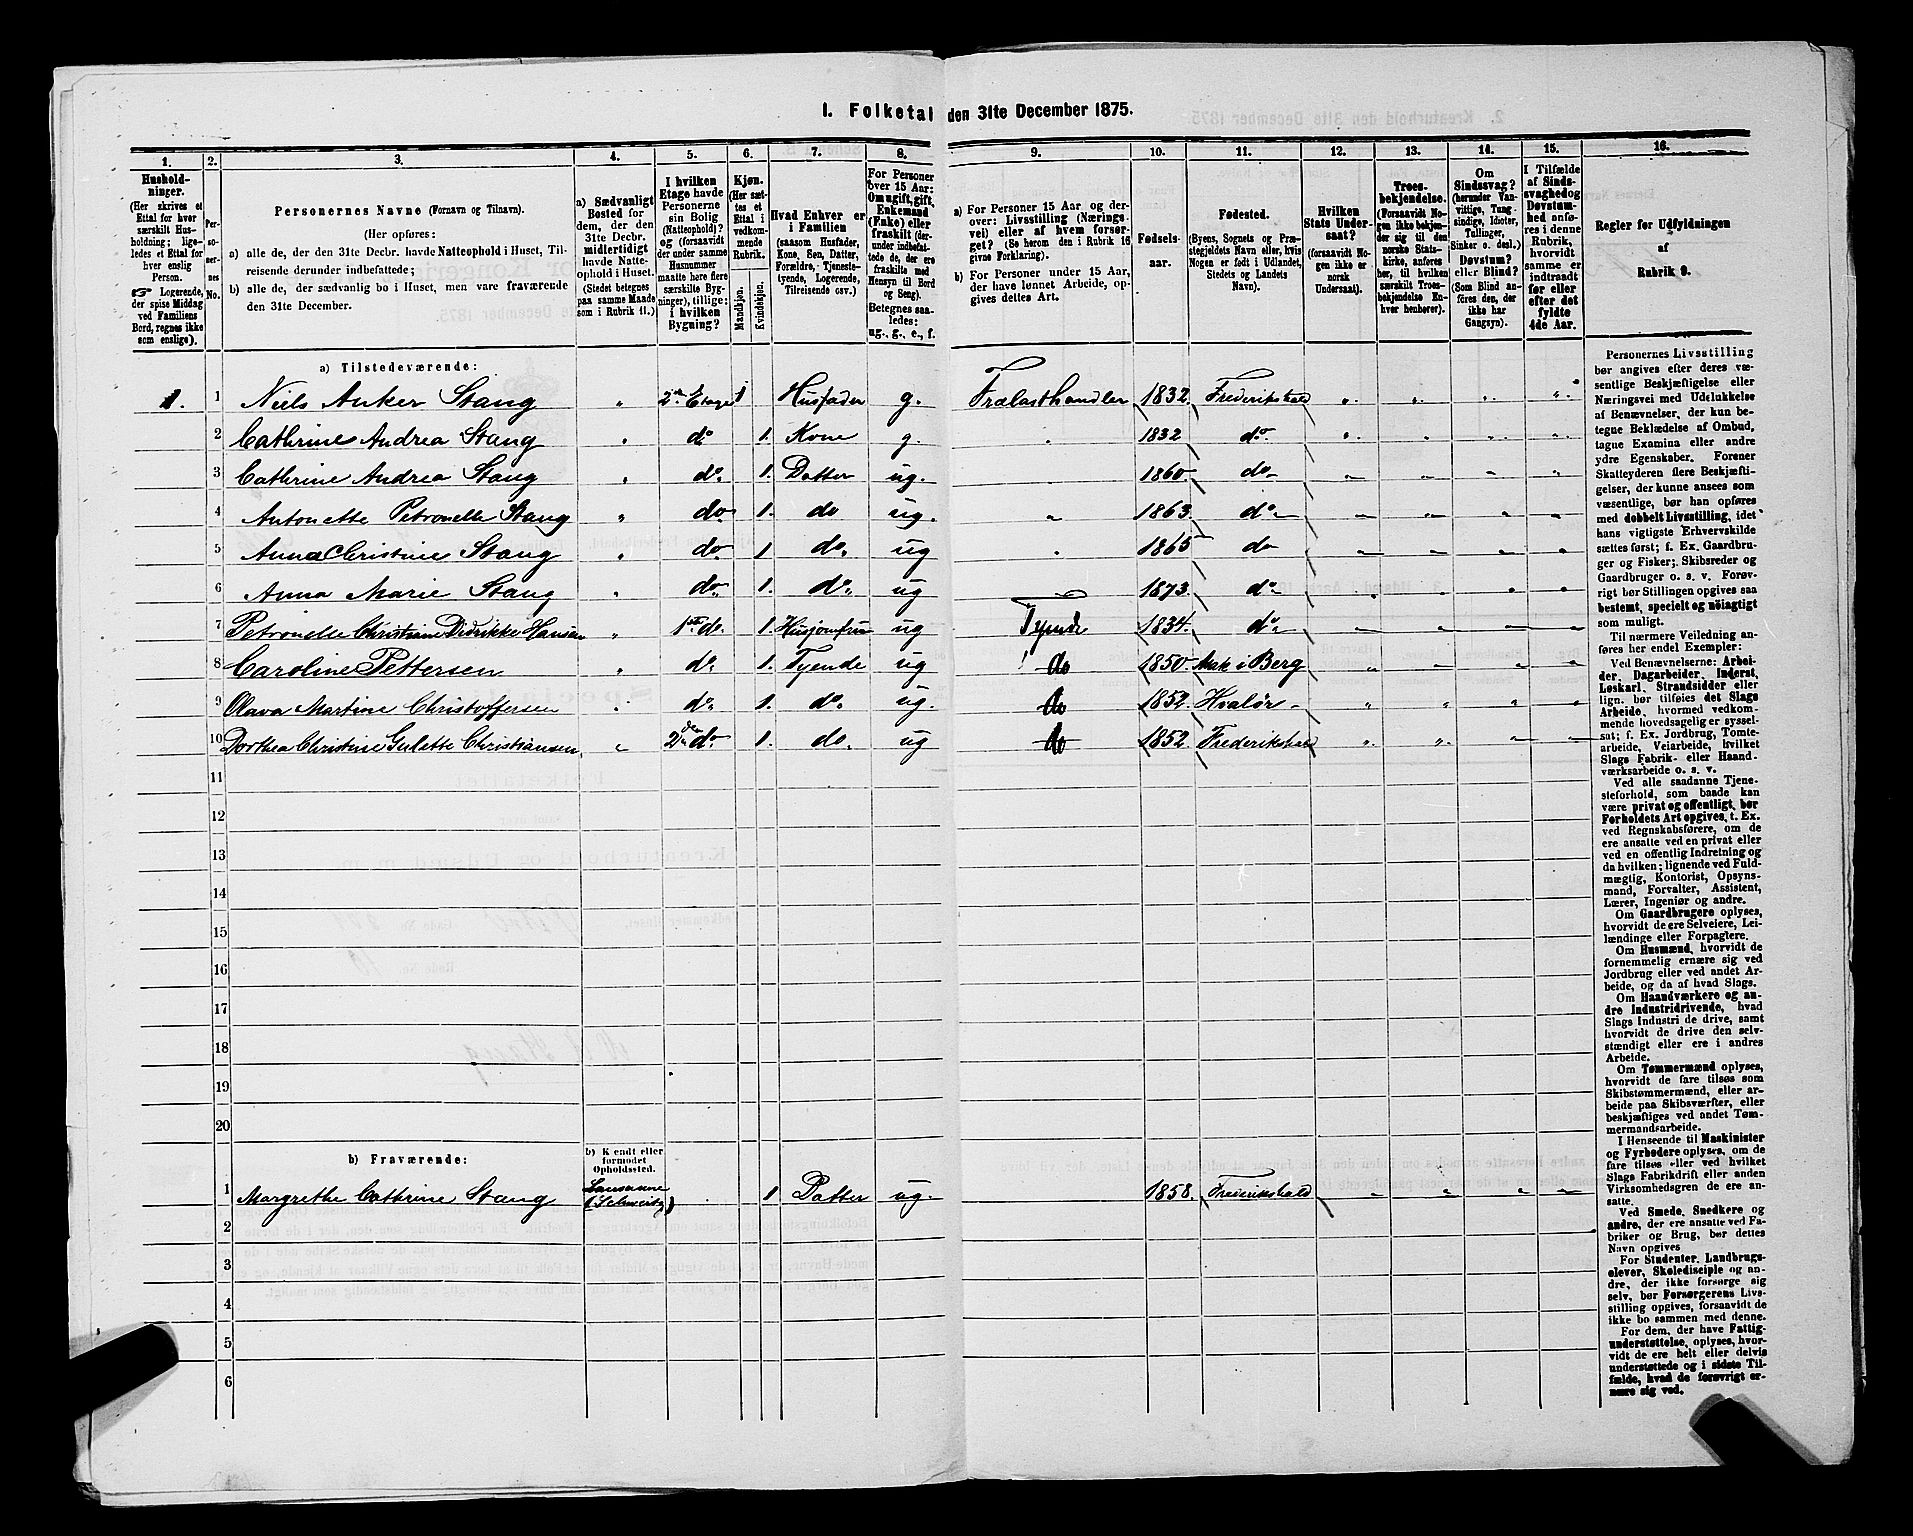 1. Folketal den 31te December 1875.
1. 2. 3. 4. 5. 6. 7. 8. 9. 10. 11. 12. 13. 14. 15. 16.
Hushold-
ninger.
(Her skrives et
Ettal for hver
særskilt Hus-
holdning; lige-
ledes et Ettal for
hver enslig
Person.
☞ Logerende,
der spise Middag
ved Familiens
Bord, regnes ikke
som enslige).
Per-
so-
ner-
nes
No.
Personernes Navne (Fornavn og Tilnavn).
(Her opføres:
a) alle de, der den 31te Decbr. havde Natteophold i Huset, Til-
reisende derunder indbefattede;
b) alle de, der sædvanlig bo i Huset, men vare fraværende
den 31te December.
a) Sædvanligt
Bosted for
dem, der den
31te Decbr.
midlertidigt
havde Natte-
ophold i Huset.
(Stedet betegnes
paa samme Maade
som i Rubrik 11.)
I hvilken
Etage havde
Personerne
sin Bolig
(Natteophold)?
og (forsaavidt
der under samme
Husnummer
særskilte Byg-
ninger), tillige:
i hvilken
Bygning?
Kjøn.
(Her sæt-
tes et
Ettal i
vedkom-
mende
Rubrik.
Mandkjøn.
Kvindekjøn.
Hvad Enhver er
i Familien
(saasom Husfader,
Kone, Søn, Datter,
Forældre, Tjeneste-
tyende, Logerende,
Tilreisende osv.)
For Personer
over 15 Aar:
Om ugift, gift,
Enkemand
(Enke) eller
fraskilt (der-
under indbefat-
tede de, der ere
fraskilte med
Hensyn til Bord
og Seng).
Betegnes saa-
ledes:
ug., g., e., f.
a) For Personer 15 Aar og der-
over: Livsstilling (Nærings-
vei) eller af hvem forsør-
get? (Se herom den i Rubrik 16
givne Forklaring).
b) For Personer under 15 Aar,
der have lønnet Arbeide, op-
gives dettes Art.
Fødsels-
aar.
Fødested.
(Byens, Sognets og Præ-
stegjeldets Navn eller, hvis
Nogen er født i Udlandet,
Stedets og Landets
Navn).
Hvilken
Stats Under-
saat?
(forsaavidt No-
gen ikke er
norsk
Undersaat).
Troes-
bekjendelse.
(Forsaavidt No-
gen ikke bekjen-
der sig til den
norske Stats-
kirke, anføres
her, til hvilken
særskilt Troes-
bekjendelse En-
hver henhører).
Om
Sindssvag?
(herunder Van-
vittige, Tung-
sindige, Idioter,
Tullinger,
Sinker o. desl.)
Døvstum?
eller Blind?
(Som Blind an-
føres den, der
ikke har
Gangsyn).
I Tilfælde
af Sinds-
svaghed og
Døvstum-
hed anfø-
res i denne
Rubrik,
hvorvidt
samme er
indtraadt
før eller
efter det
fyldte
4de Aar.
Regler for Udfyldningen
af
Rubrik 9.
a) Tilstedeværende:
1. 1 Niels Anker Stang „ 2den Etage 1 Husfader g. Trælasthandler 1832. Frederikshald
2 Cathrine Andrea Stang „ do 1. Kone g. „ 1832 do.
3 Cathrine Andrea Stang „ do. 1. Datter ug. 1860. do
4 Antonette Petronelle Stang „ do. 1. do ug. „ 1863. do
5 Anna Christine Stang „ do 1 do. ug „ 1865 do
6 Anna Marie Stang „ do. 1. do. ug 1873. do
7 Petronelle Christiane Didrikke Hansen „ 1ste do. 1. Husjomfru ug Tyende 1834. do
8 Caroline Pettersen „ do. 1. Tyende ug do 1850. Ask i Berg
9 Olava Martine Christoffersen „ do. 1. do. ug. do 1852. Hvalör
10 Dorthea Christine Gulette Christiansen „ 2den do. 1. do. ug do 1852. Frederikshald
11
12
13
14
15
16
17
18
19
20
b) Fraværende:
b) Kjendt eller
formodet
Opholdssted.
1 Margrethe Cathrine Stang Lausanne (Schweitz) 1 Datter ug. 1858. Frederikshald
2
3
4
5
6
Personernes Livsstilling
bør angives efter deres væ-
sentlige Beskjæftigelse eller
Næringsvei med Udelukkelse
af Benævnelser, der kun be-
tegne Beklædelse af Ombud,
tagne Examina eller andre
ydre Egenskaber. Forener
Skatteyderen flere Beskjæfti-
gelser, der kunne ansees som
væsentlige, bør han opføres
med dobbelt Livsstilling, idet
hans vigtigste Erhvervskilde
sættes først; f. Ex. Gaardbru-
ger og Fisker; Skibsreder og
Gaardbruger o. s. v. Forøv-
rigt bør Stillingen opgives saa
bestemt, specielt og nøiagtigt
som muligt.
Til nærmere Veiledning an-
føres her endel Exempler:
Ved Benævnelserne: Arbei-
der, Dagarbeider, Inderst,
Løskarl, Strandsidder eller
lign. bør tilføies det Slags
Arbeide, hvormed vedkom-
mende hovedsagelig er syssel-
sat; f. Ex. Jordbrug, Tomte-
arbeide, Veiarbeide, hvilket
Slags Fabrik- eller Haand-
værksarbeide o. s. v.
Ved alle saadanne Tjene-
steforhold, som baade kan
være privat og offentligt, bør
Forholdets Art opgives, t. Ex.
ved Regnskabsførere, om de
ere ansatte ved en privat eller
ved en offentlig Indretning og
da hvilken; lignende ved Fuld-
mægtig, Kontorist, Opsyns-
mand, Forvalter, Assistent,
Lærer, Ingeniør og andre.
Om Gaardbrugere oplyses,
hvorvidt de ere Selveiere, Lei-
lændinge eller Forpagtere.
Om Husmænd, hvorvidt de
fornemmelig ernære sig ved
Jordbrug eller ved andet Ar-
beide, og da af hvad Slags.
Om Haandværkere og an-
dre Industridrivende, hvad
Slags Industri de drive, samt
hvorvidt de drive den selv-
stændigt eller ere i andres
Arbeide.
Om Tømmermænd oplyses,
hvorvidt de fare tilsøs som
Skibstømmermænd, eller ar-
beide paa Skibsværfter, eller
beskjæftiges ved andet Tøm-
mermandsarbeide.
I Henseende til Maskinister
og Fyrbødere oplyses, om de
fare tilsøs eller ved hvilket
Slags Fabrikdrift eller anden
Virksomhedsgren de ere an-
satte.
Ved Smede, Snedkere og
andre, der ere ansatte ved Fa-
briker og Brug, bør dettes
Navn opgives
For Studenter, Landbrugs-
elever, Skoledisciple og an-
dre, der ikke forsørge sig
selv, bør Forsørgerens Livs-
stilling opgives, forsaavidt de
ikke bo sammen med denne.
For dem, der have Fattig-
understøttelse, oplyses, hvor-
vidt de ere helt eller delvis
understøttede og i sidste Til-
fælde, hvad de forøvrigt er-
nære sig ved.